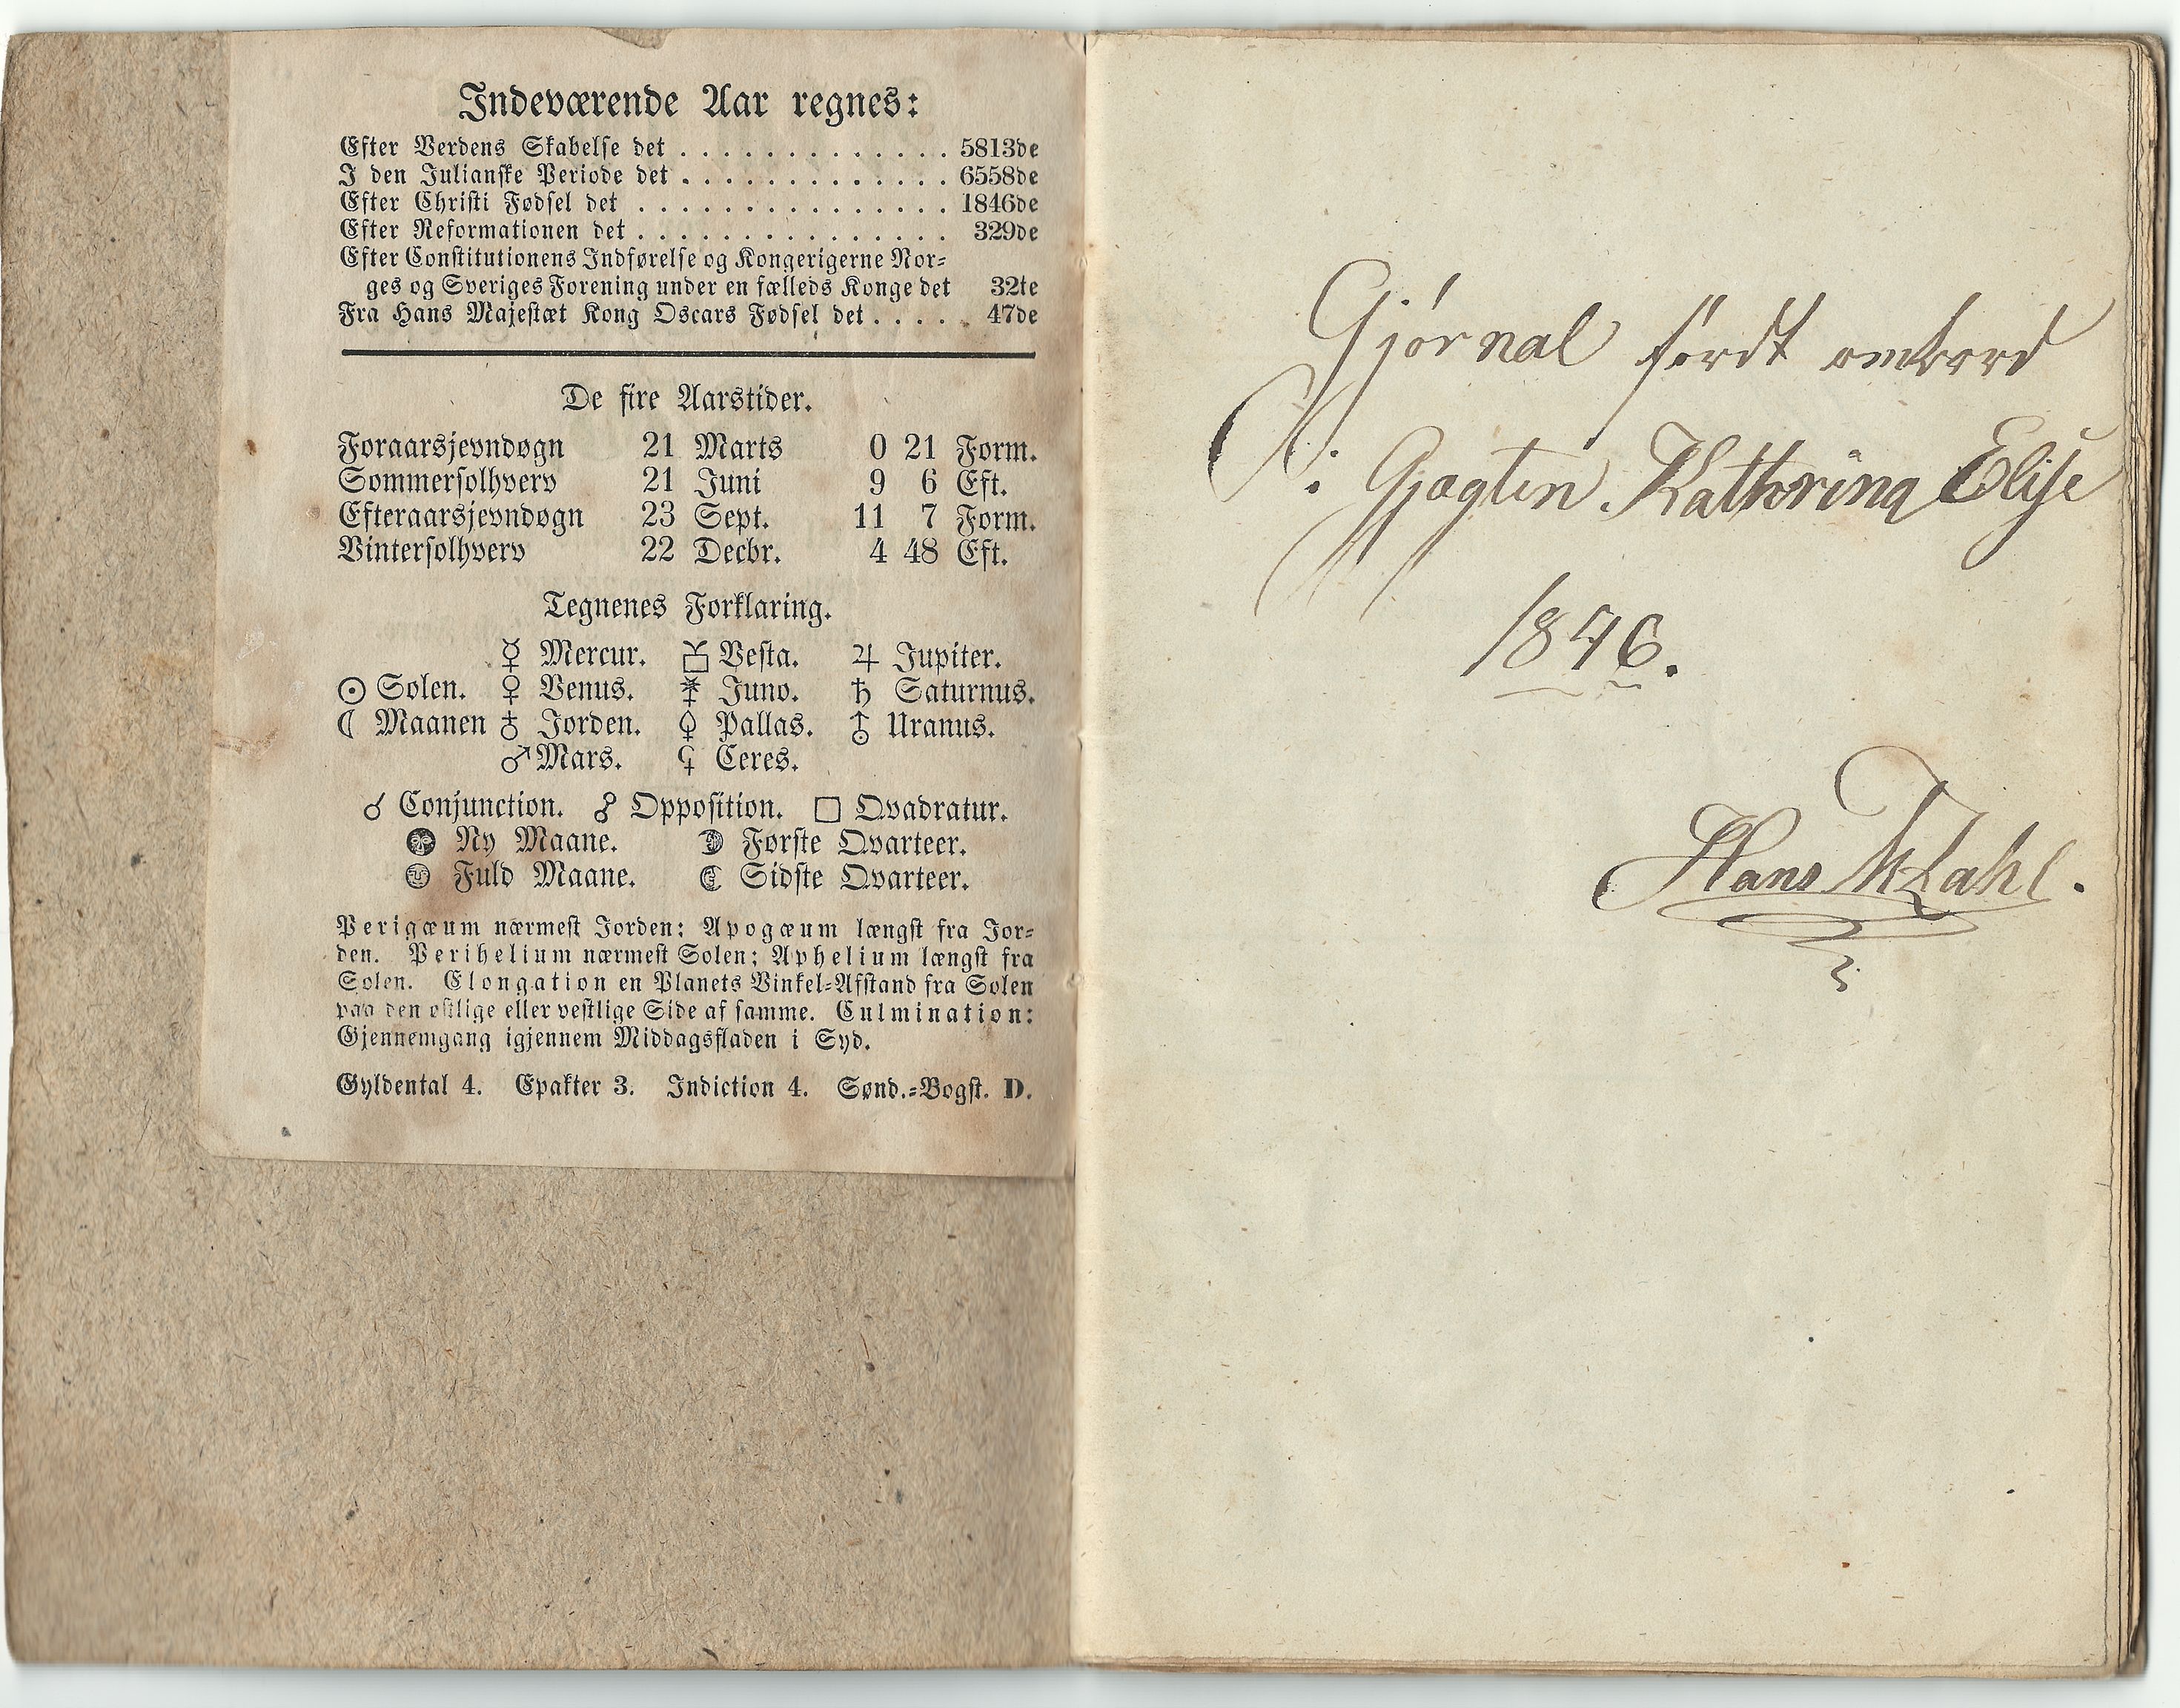 Indeværende Aar regnes:
Efter Verdens Skabelse det . . . . . . . . . . . . . 5813de
I den Julianske Periode det . . . . . . . . . . . . . 6558de
Efter Christi Fødsel det . . . . . . . . . . . . . . . 1846de
Efter Reformationen det . . . . . . . . . . . . . . . 329de
Efter Constitutionens Indførelse og Kongerigerne Nor-
ges og Sveriges Forening under en fælleds Konge det 32te
Fra Hans Majestæt Kong Oscars Fødsel det . . . . . 47de
De fire Aarstider.
Foraarsjevndøgn 21 Marts 0 21 Form.
Sommersolhverv 21 Juni 9 6 Eft.
Efteraarsjevndøgn 23 Sept. 11 7 Form.
Vintersolhverv 22 Decbr. 4 48 Eft.
Tegnenes Forklaring.
☿ Mercur. ⚶ Vesta. ♃ Jupiter.
☉ Solen. ♀ Venus. ⚵ Juno. ♄ Saturnus.
☾ Maanen ♁ Jorden. ⚴ Pallas. ⛢ Uranus.
♂ Mars. ⚳ Ceres.
☌ Conjunction. ☍ Opposition. □ Qvadratur.
Ny Maane. Første Qvarteer.
Fuld Maane. Sidste Qvarteer.
Perigæum nærmest Jorden; Apogæum længst fra Jor-
den. Perihelium nærmest Solen; Aphelium længst fra
Solen. Elongation en Planets Vinkel-Afstand fra Solen
paa den østlige eller vestlige Side af samme. Culmination:
Gjennemgang igjennem Middagsfladen i Syd.
Gyldental 4. Epakter 3. Indiction 4. Sønd.-Bogst. D.
Gjörnal fördt ombord
Gjagten Kathrina Elise
1846.
Hans